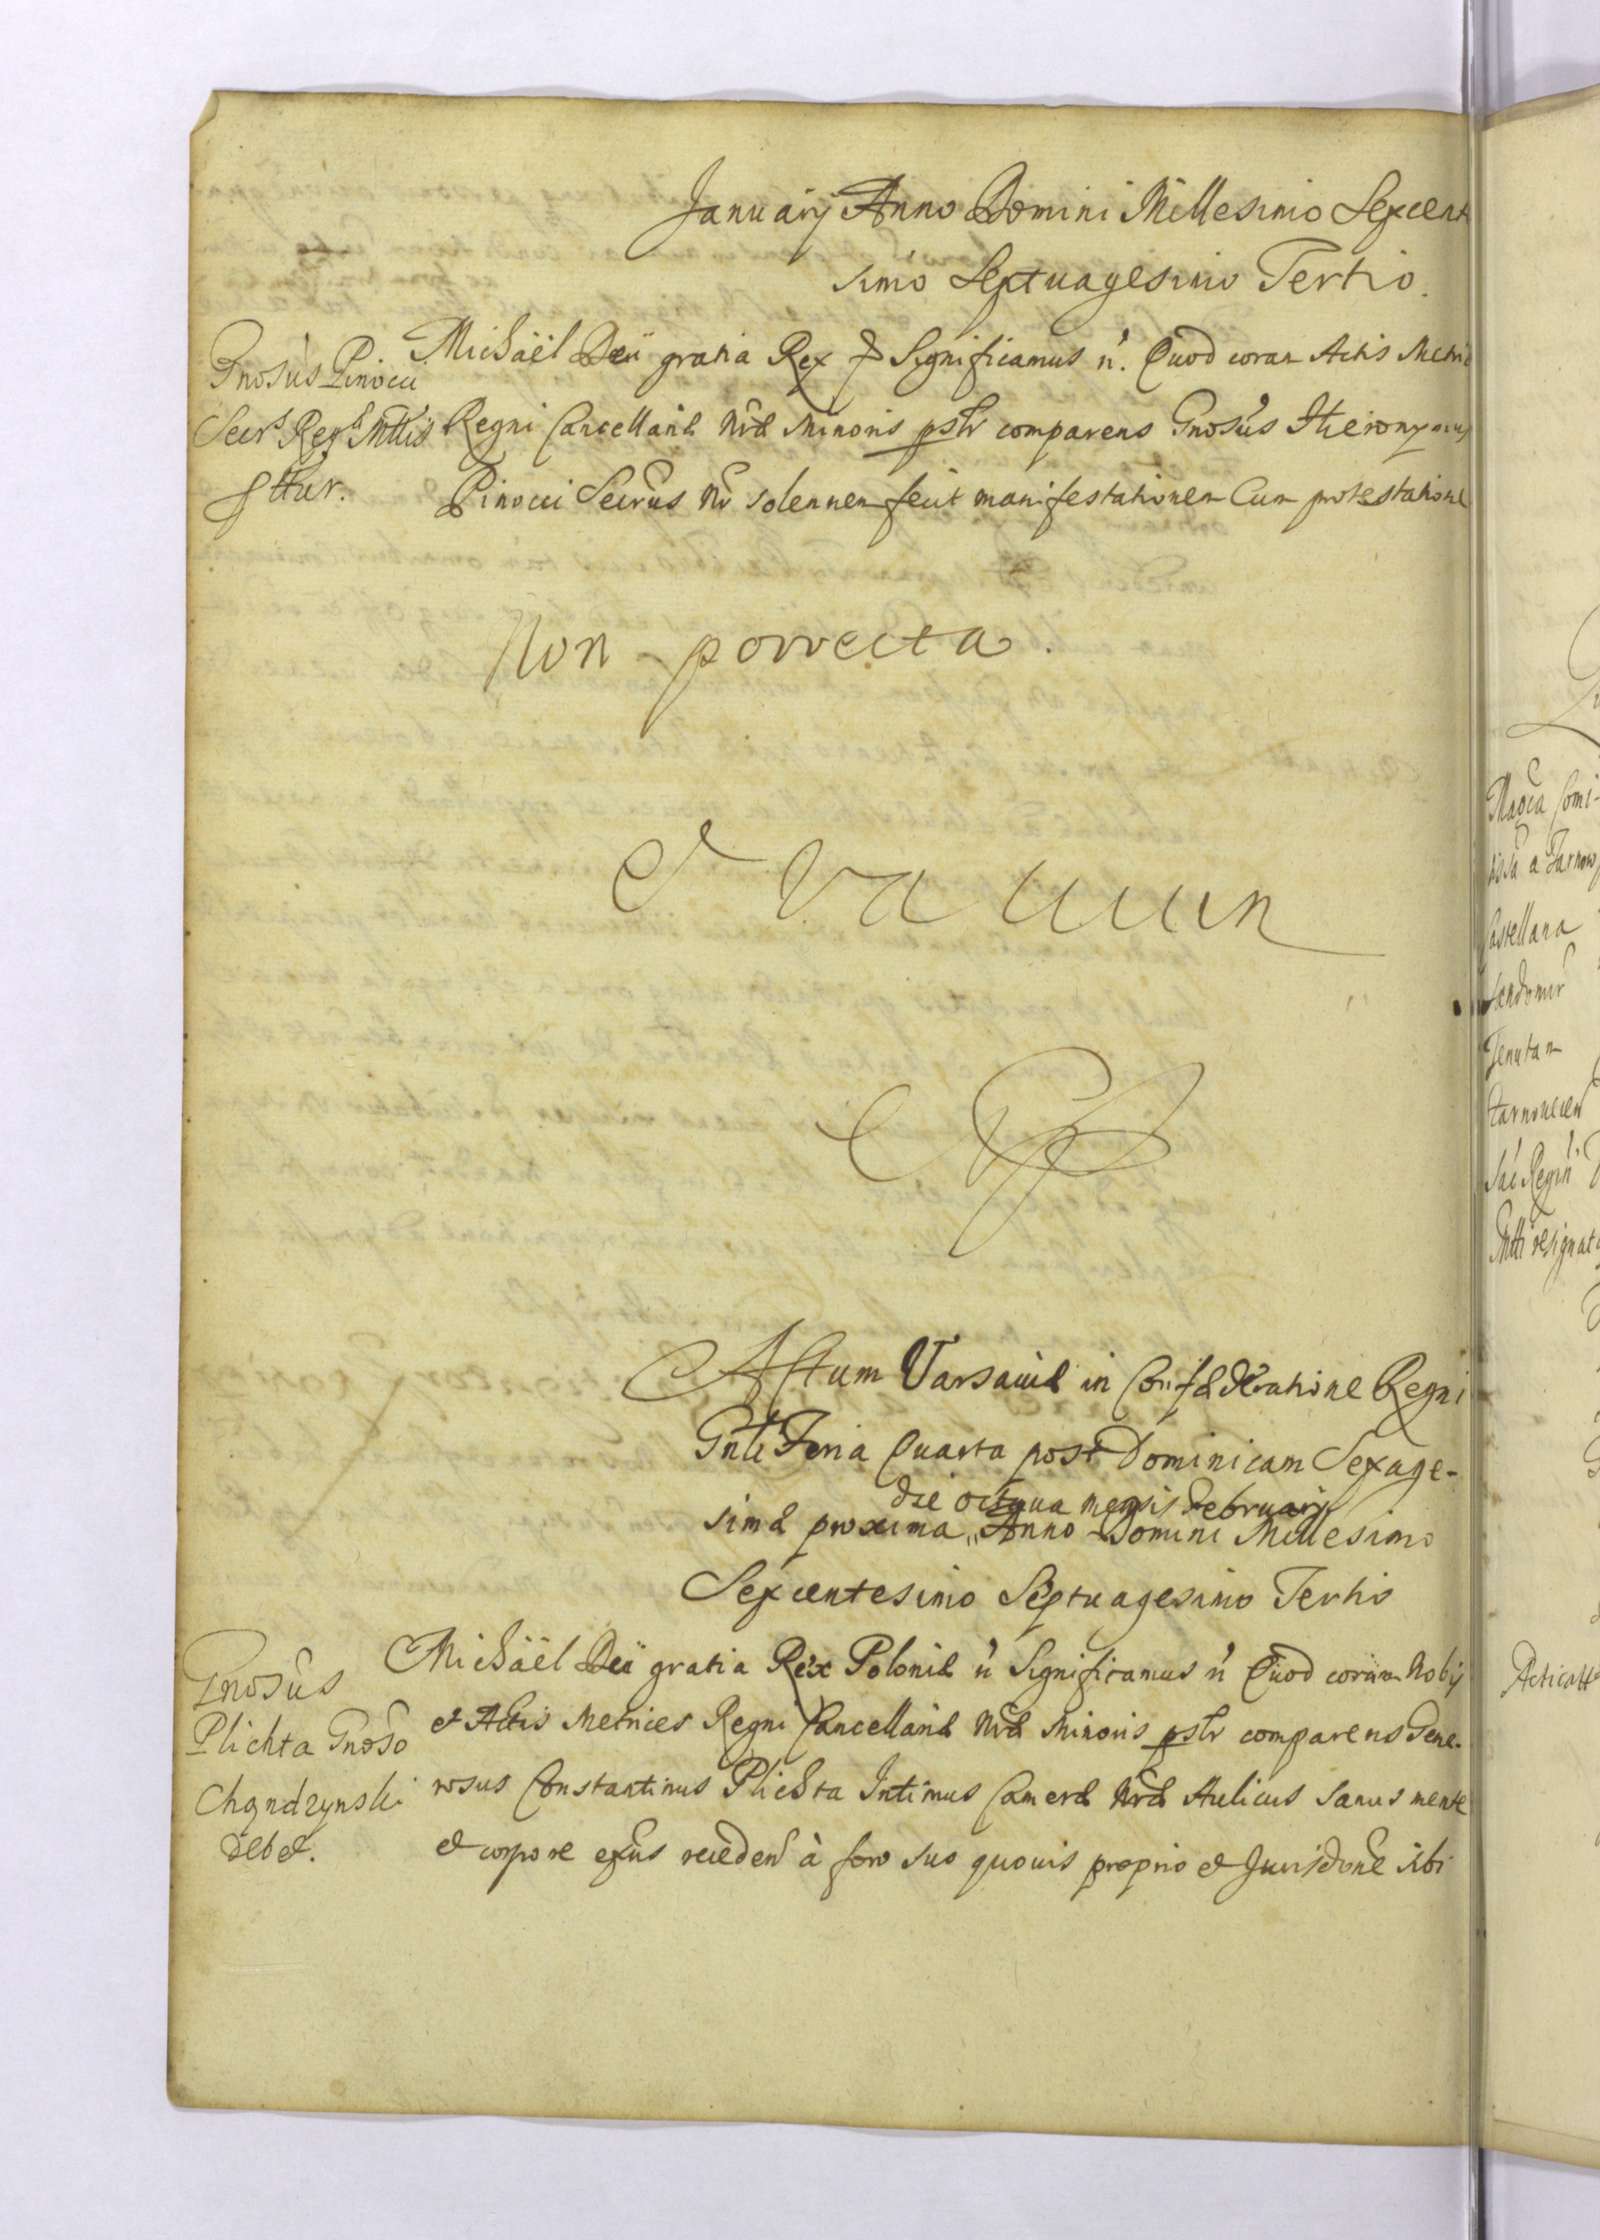 Januarÿ Anno Domini Millesimo Sexcent
simo Septuagesimo Tertio.
Gnosus P.
Pinocci
Secrs Regs Mttis
sttur.
Michaël Dei gratia Rex Significamus n. Quod coram Actis Metric
Regni Cancellariæ Nræ Minoris pslr comparens Gnosus Hieronymus
Pinocci Secrus Nr solennem fecit manifestationem Cum protestatione
Non porrecta.
Actum Varsaviæ in Confæderatione Regni
Gnli Feria Quarta post Dominicam Sexage-
die octava mensis Februarij
simæ proxima, Anno Domini Millesimo
Sexcentesimo Septuagesimo Tertio
Gnosus
Plichta Gnoso
Chądzynski
debet.
Michaël Dei gratia Rex Poloniæ n Significamus n Quod coram Nobis
et Actis Metrices Regni Cancellariæ Nræ Minoris pslr comparens Gene-
rosus Constantinus Plichta Intimus Cameræ Nræ Aulicus sanus mente
et corpore exns recedens à foro suo quovis proprio et Jurisdone sibi
Magca Comi-
tissa a Tarnow
Castellana
Sendomir
Tenutam
tarnovicen
Sac Regin
Mtti resignat